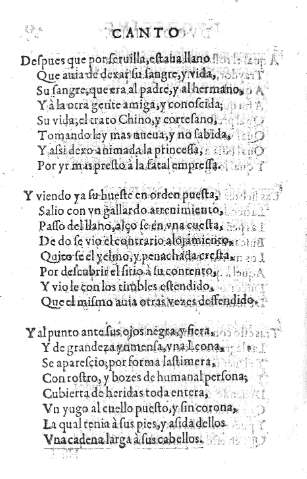 CANTO
Despues que por seruilla, estaua llano
Que auia de dexar su sangre, y vida,
Su sangre, que era al padre, y al hermano,
Y à la otra gente amiga, y conoscida;
Su vida, el trato Chino, y cortesano,
Tomando ley mas nueua, y no sabida,
Y assi dexo animada la princessa,
Por yr mas presto à la fatal empressa.
Y viendo ya su hueste en orden puesta,
Salio con vn gallardo atreuimiento,
Passo del llano, alço se en vna cuesta,
De do se vio el contrario alojamiento,
Quito se el yelmo, y penachada cresta
Por descubrir el sitio à su contento,
Y vio le con los timbles estendido
Que el mismo auia otras vezes deffendido.
Y al punto ante sus ojos negra, y fiera,
Y de grandeza ynmensa, vna Leona,
Se aparescio; por forma lastimera,
Con rostro, y bozes de humanal persona;
Cubierta de heridas toda entera,
Vn yugo al cuello puesto, y sin corona,
La qual tenia à sus pies, y asida dellos
Vna cadena larga à sus cabellos.